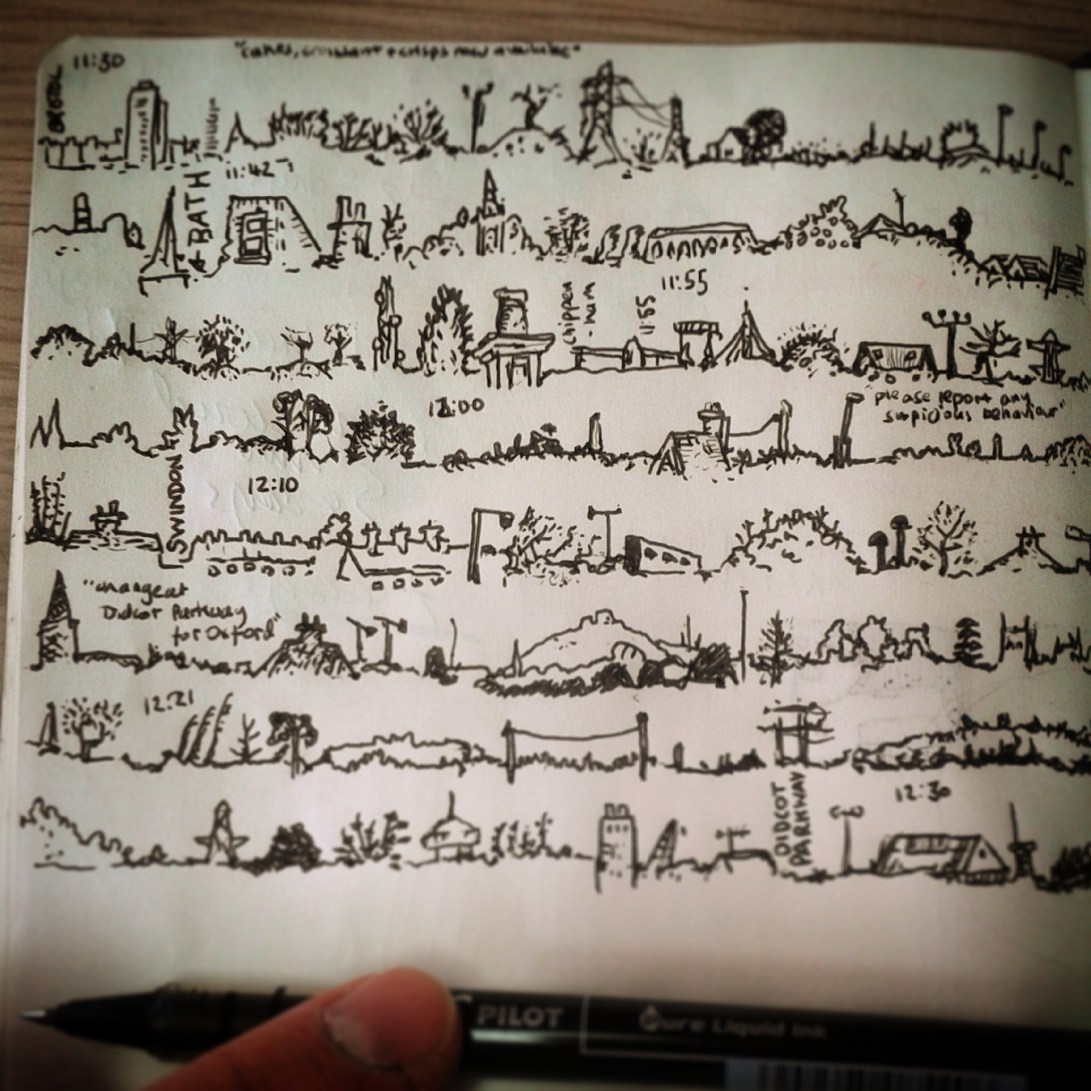 11:30
"cakes, croissant + crisps now available"
BRISTOL
11:42
BATH
11:55
chippen
-ham
11:55
12:00
"please report any
suspicious behaviour"
SWINDON
12:10
"change at
Didcot Parkway
for Oxford"
12:21
DIDCOT
PARKWAY
12:30
PILOT
Pure Liquid Ink